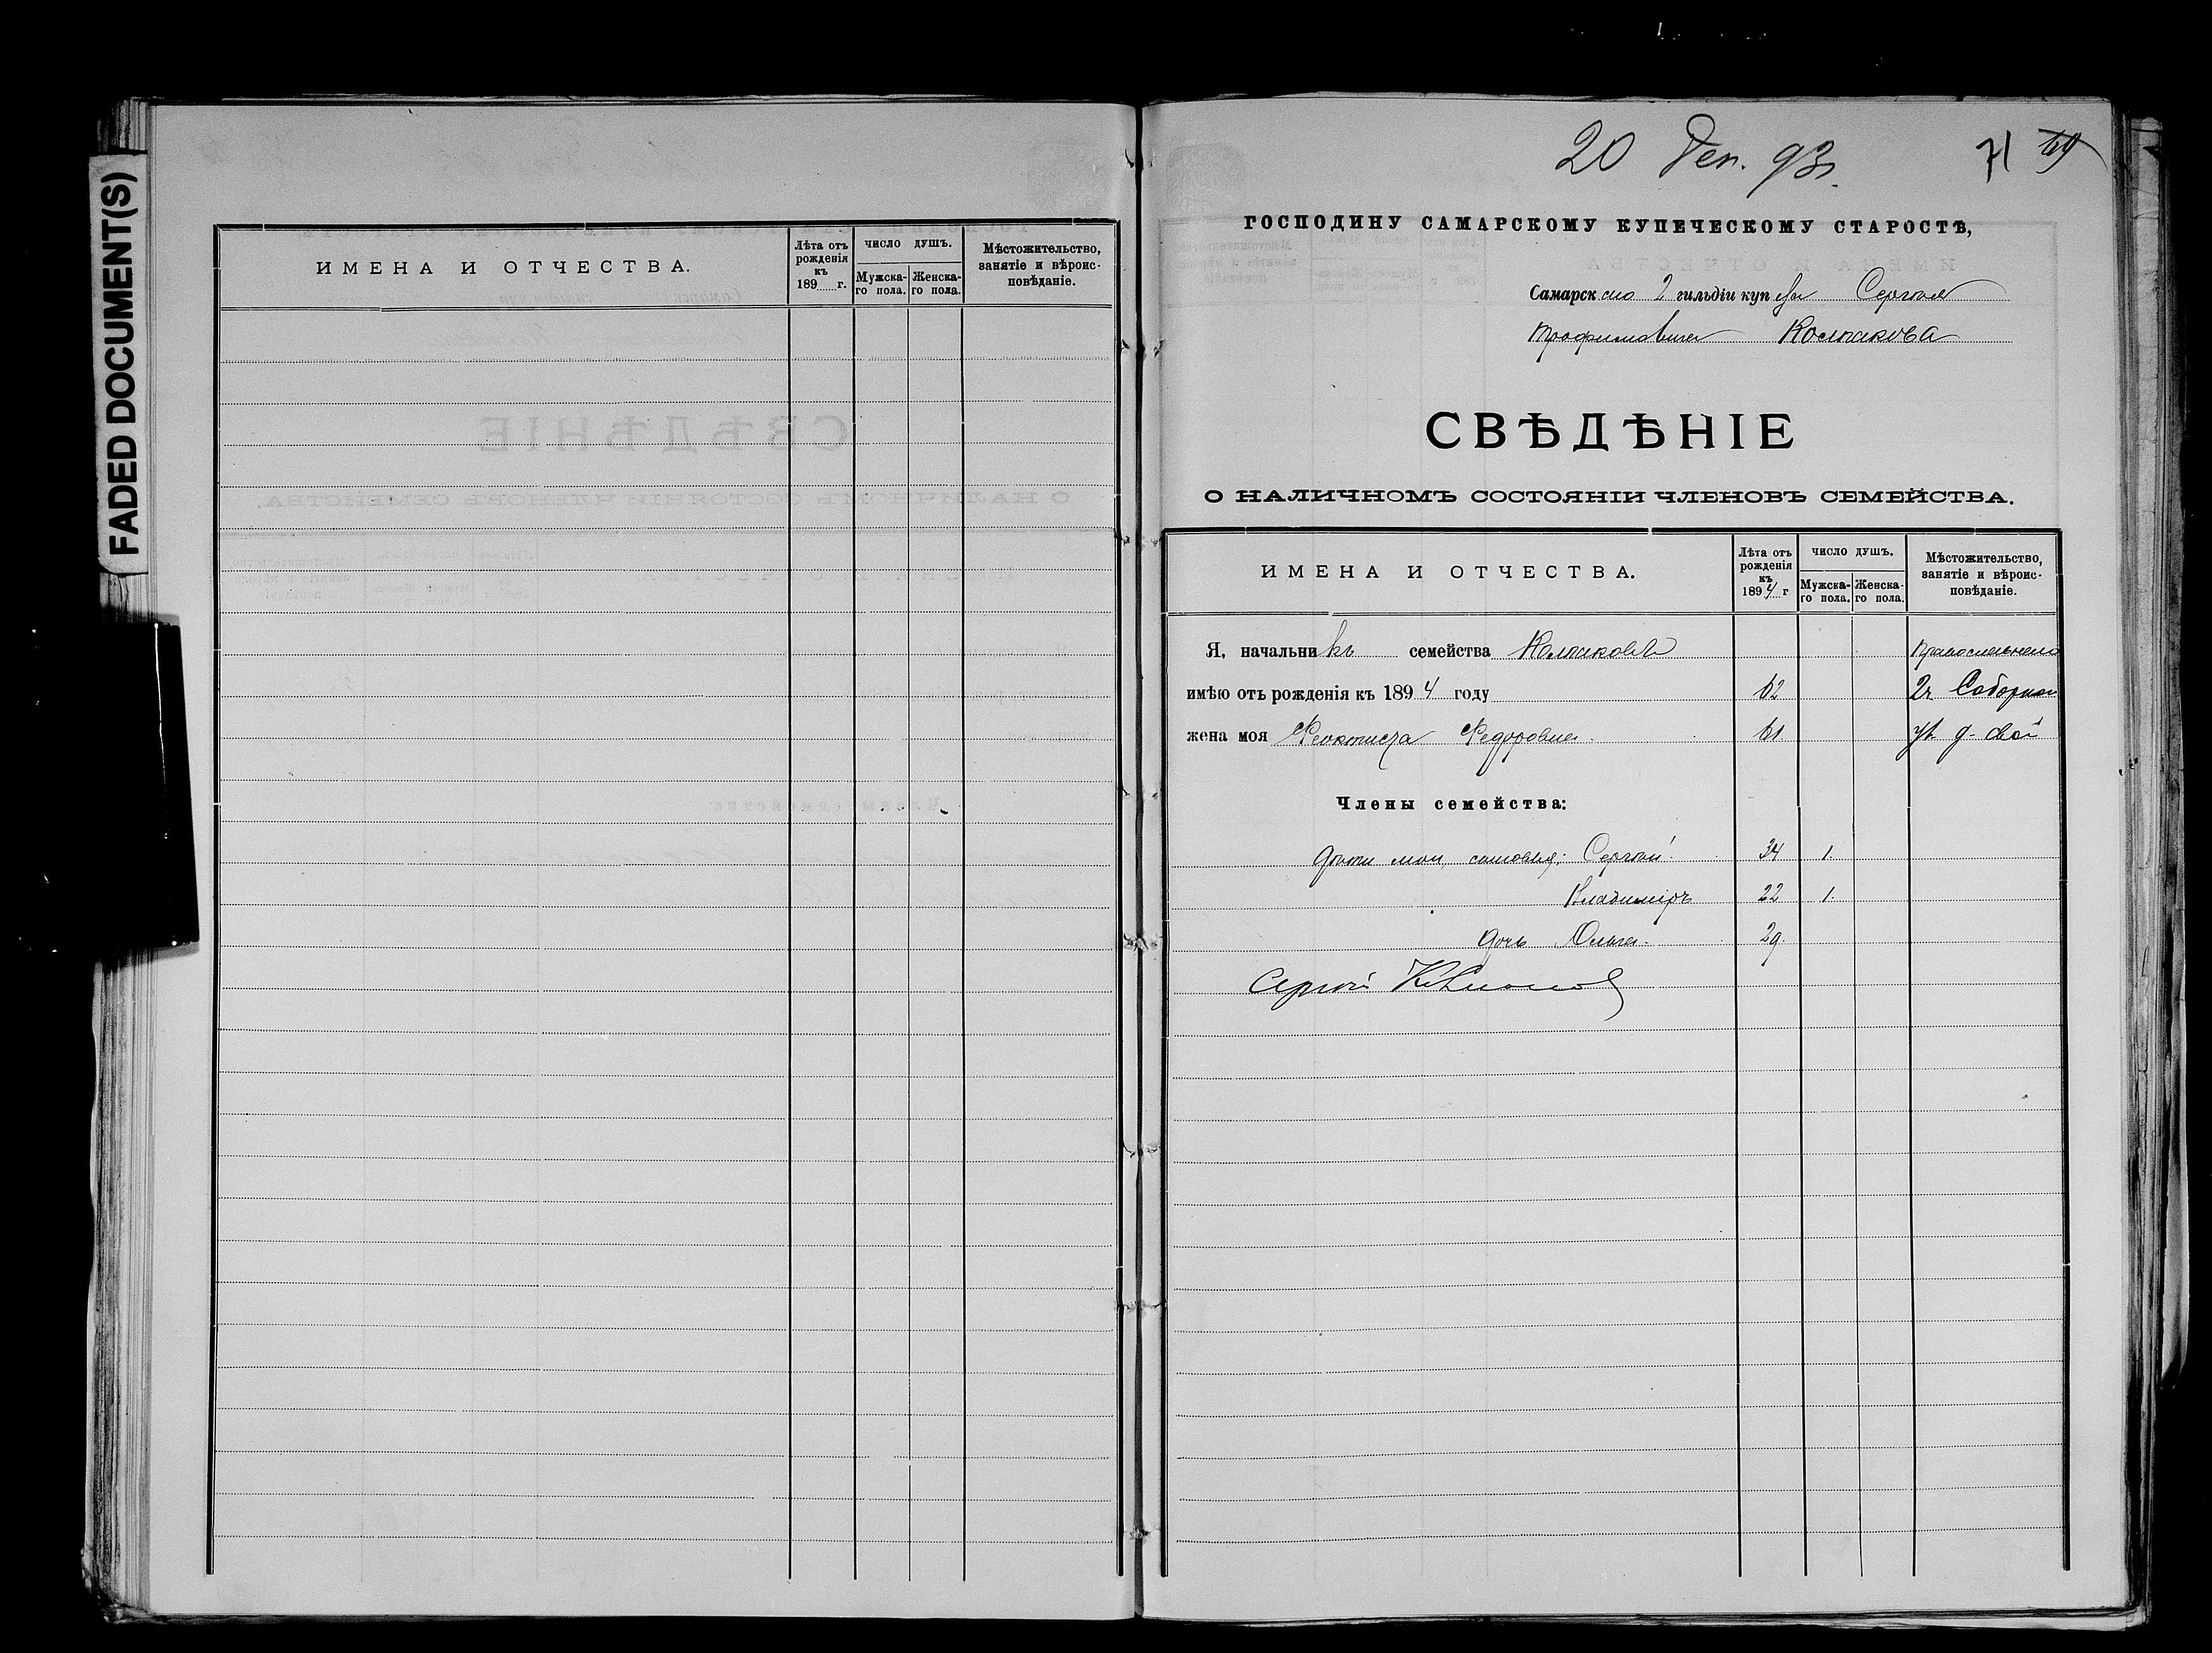 FADED DOCUMENT(S)
ИМЕНА И ОТЧЕСТВА.
Лѣта отъ рожденія къ 189 г.
ЧИСЛО ДУШЪ.
Мужска-го пола.
Женска-го пола.
Мѣстожительство, занятіе и вѣроис-повѣданіе.
20 Дек. 93 г.
71 69
ГОСПОДИНУ САМАРСКОМУ КУПЕЧЕСКОМУ СТАРОСТѢ,
Самарскаго 2 гильдіи купца Сергѣя
Трофимовича Колпакова
СВѢДѢНІЕ
О НАЛИЧНОМЪ СОСТОЯНІИ ЧЛЕНОВЪ СЕМЕЙСТВА.
ИМЕНА И ОТЧЕСТВА.
Лѣта отъ рожденія къ 1894 г
ЧИСЛО ДУШЪ.
Мужска-го пола.
Женска-го пола.
Мѣстожительство, занятіе и вѣроис-повѣданіе.
Я, начальникъ семейства Колпаковъ Православнаго
имѣю отъ рожденія къ 1894 году 62 2ч Соборная
жена моя Феоктиста Федоровна. 61 ул д. свой
Члены семейства:
дѣти мои, сыновья: Сергѣй. 34 1.
Владиміръ 22 1.
дочь Ольга. 29.
Сергѣй Колпаков